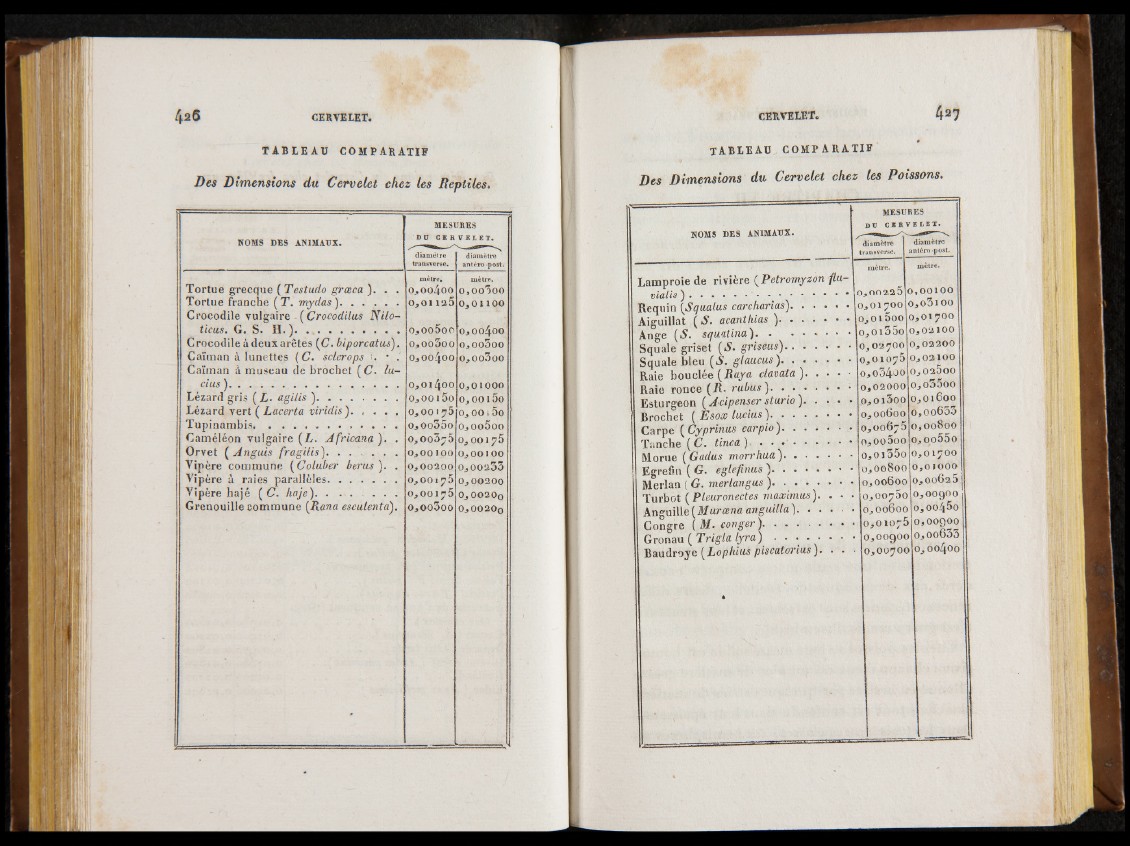 426 CERVELET.
TABLEAU COMPARATIF
Des Dimensions du Cervelet chez les Reptiles.
NOMS DES ANIMAUX.
MESURES
DU CERVELET.
diamètre transverse. diamètre antéro-post.
mètre. mètre.
Tortue grecque (Testudo græca). . . 0,00400 0,00300
Tortue franche (T. mydas). . . . . . 0,01125 0,01100
Crocodile vulgaire (Crocodilus Nilo-
ticus. G. S. H.). . . . . . . . . . 0,00500 0,00400
Crocodile à deux arêtes (C. biporcatus). 0,00300 0,00300
Caïman à lunettes (C. sclerops). . . 0,00400 0,00300
Caïman à museau de brochet (C. lu-
cius). . . . . . . . . . . . . . . . 0,01400 0,01000
Lézard gris (L. agilis). . . . . . . . 0,00150 0,00150
Lézard vert (Lacerta viridis). . . . . 0,00175 0,00150
Tupinambis. . . . . . . . . . . . . 0,00350 0,00500
Caméléon vulgaire (L. Africana). . 0,00375 0,00175
Orvet (Anguis fragilis). . . . . . . 0,00100 0,00100
Vipère commune (Coluber berus). . 0,00200 0,00233
Vipère à raies parallèles. . . . . . . 0,00175 0,00200
Vipère hajé (C. haje). . . . . . . . 0,00175 0,00200
Grenouille commune (Rana esculenta). 0,00300 0,00200
CERVELET. 427
TABLEAU COMPARATIF
Des Dimensions du Cervelet chez les Poissons.
NOMS DES ANIMAUX.
MESURES
DU CERVELET.
diamètre transverse. diamètre antéro-post.
mètre. mètre.
Lamproie de rivière (Petromyzon flu-
vialis). . . . . . . . . . . . . . . 0,00225 0,00100
Requin (Squalus carcharias). . . . . . 0,01700 0,03100
Aiguillat (S. acanthias). . . . . . . 0,01500 0,01700
Ange (S. squatina). . . . . . . . . 0,01350 0,02100
Squale griset (S. griseus). . . . . . . 0,02700 0,02200
Squale bleu (S. glaucus). . . . . . . 0,01075 0,02100
Raie bouclée (Raya clavata). . . . . 0,03400 0,02500
Raie ronce (R. rubus). . . . . . . . 0,02000 0,03300
Esturgeon (Acipenser sturio). . . . . 0,01300 0,01600
Brochet (Esox lucius). . . . . . . . 0,00600 0,00633
Carpe (Cyprinus carpio). . . . . . . 0,00675 0,00800
Tanche (C. tinca). . . . . . . . . . 0,00500 0,00550
Morue (Gadus morrhua). . . . . . . 0,01350 0,01700
Egrefin (G. eglefinus). . . . . . . . 0,00800 0,01000
Merlan (G. merlangus). . . . . . . . 0,00600 0,00625
Turbot (Pleuronectes maximus). . . . 0,00750 0,00900
Anguille (Muræna anguilla). . . . . 0,00600 0,00450
Congre (M. conger). . . . . . . . . 0,01075 0,00900
Gronau (Trigla lyra) . . . . . . . . 0,00900 0,00633
Baudroye (Lophius piscatorius). . . . 0,00700 0,00400